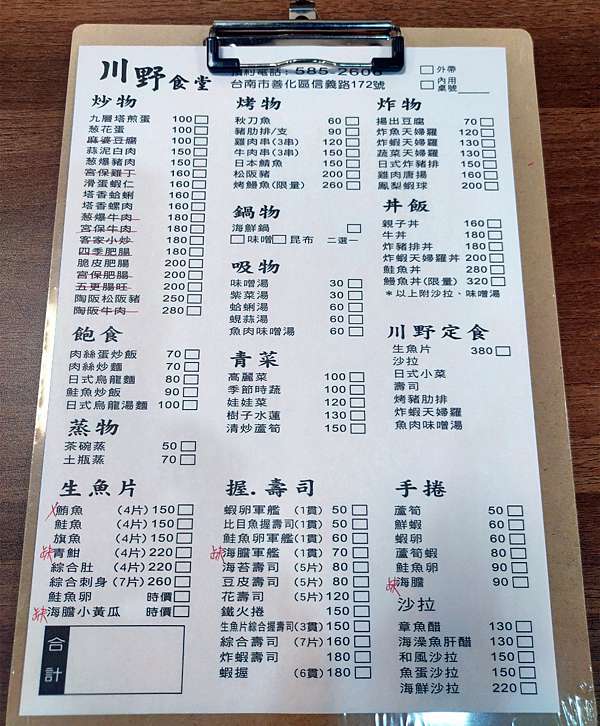 川野食堂
預約電話：585-2606
台南市善化區信義路172號
外帶
內用
桌號
炒物
九層塔煎蛋 100
葱花蛋 100
麻婆豆腐 100
蒜泥白肉 150
葱爆豬肉 150
宮保雞丁 160
滑蛋蝦仁 160
塔香蛤蜊 160
塔香螺肉 160
葱爆牛肉 180
宮保牛肉 180
客家小炒 180
四季肥腸 180
脆皮肥腸 200
宮保肥腸 200
五更腸旺 200
陶阪松阪豬 250
陶阪牛肉 280
飽食
肉絲蛋炒飯 70
肉絲炒麵 70
日式烏龍麵 80
鮭魚炒飯 90
日式烏龍湯麵 100
蒸物
茶碗蒸 50
土瓶蒸 70
烤物
秋刀魚 60
豬肋排/支 90
雞肉串(3串) 120
牛肉串(3串) 150
日本鯖魚 150
松阪豬 200
烤鰻魚(限量) 260
鍋物
海鮮鍋
味噌 昆布 二選一
吸物
味噌湯 30
紫菜湯 30
蛤蜊湯 60
蜆蒜湯 60
魚肉味噌湯 60
青菜
高麗菜 100
季節時蔬 100
娃娃菜 120
樹子水蓮 130
清炒蘆筍 150
炸物
揚出豆腐 70
炸魚天婦羅 120
炸蝦天婦羅 130
蔬菜天婦羅 130
日式炸豬排 150
雞肉唐揚 160
鳳梨蝦球 180
丼飯
親子丼 160
牛丼 180
炸豬排丼 180
炸蝦天婦羅丼 200
鮭魚丼 280
鰻魚丼(限量) 320
*以上附沙拉、味噌湯
川野定食
生魚片 380
沙拉
日式小菜
壽司
烤豬肋排
炸蝦天婦羅
魚肉味噌湯
生魚片
x鮪魚 (4片) 150
鮭魚 (4片) 150
旗魚 (4片) 150
缺 青魽 (4片) 220
綜合肚 (4片) 220
綜合刺身 (7片) 260
鮭魚卵 時價
缺 海膽小黃瓜 時價
合計
握.壽司
蝦卵軍艦 (1貫) 50
比目魚握壽司 (1貫) 50
鮭魚卵軍艦 (1貫) 60
缺 海膽軍艦 (1貫) 70
海苔壽司 (5片) 80
豆皮壽司 (5片) 80
花壽司 (5片) 120
鐵火捲 150
生魚片綜合握壽司(3貫) 150
綜合壽司 (7片) 160
炸蝦壽司 180
蝦握 (6貫) 180
手捲
蘆筍 50
鮮蝦 60
蝦卵 60
蘆筍蝦 80
鮭魚卵 90
缺 海膽 90
沙拉
章魚醋 130
海澡魚肝醋 130
和風沙拉 150
魚蛋沙拉 150
海鮮沙拉 220